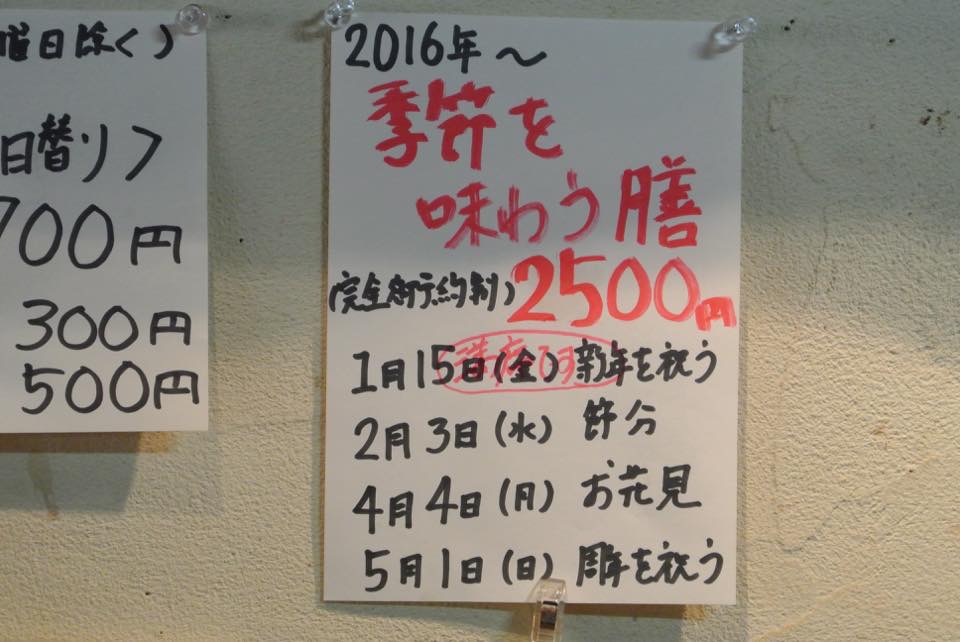 曜日除く)
日替り〉
700円
300円
500円
2016年~
季節を
味わう膳
(完全予約制) 2500円
満席です
1月15日(金) 新年を祝う
2月3日(水) 節分
4月4日(月) お花見
5月1日(日) 周年を祝う